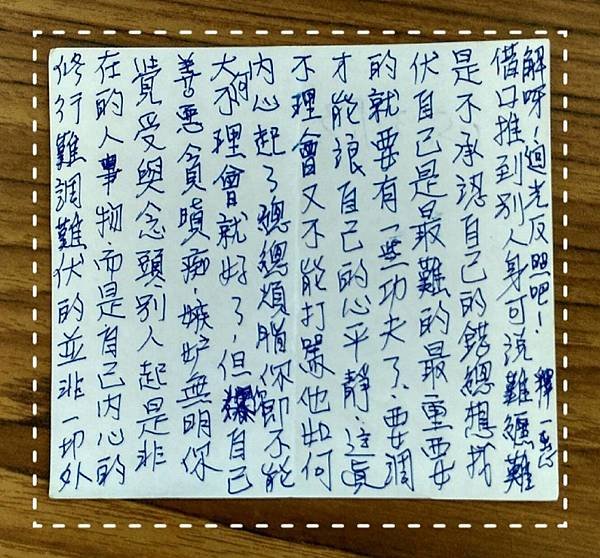 修行難調難伏的並非一切外
在的人事物,而是自己內心的
覺受與念頭,別人起是非
善惡貪瞋痴,嫉妒無明你
大可不理會就好了,但你自己
內心起了總總煩腦你即不能
不理會又不能打罵他如何
才能浪自己的心平靜,這真
的就要有一些功夫了,要調
伏自己是最難的最重要
是不承認自己的錯總想找
借口推到別人身可說難纏難
解呀!迴光反照吧!
釋一